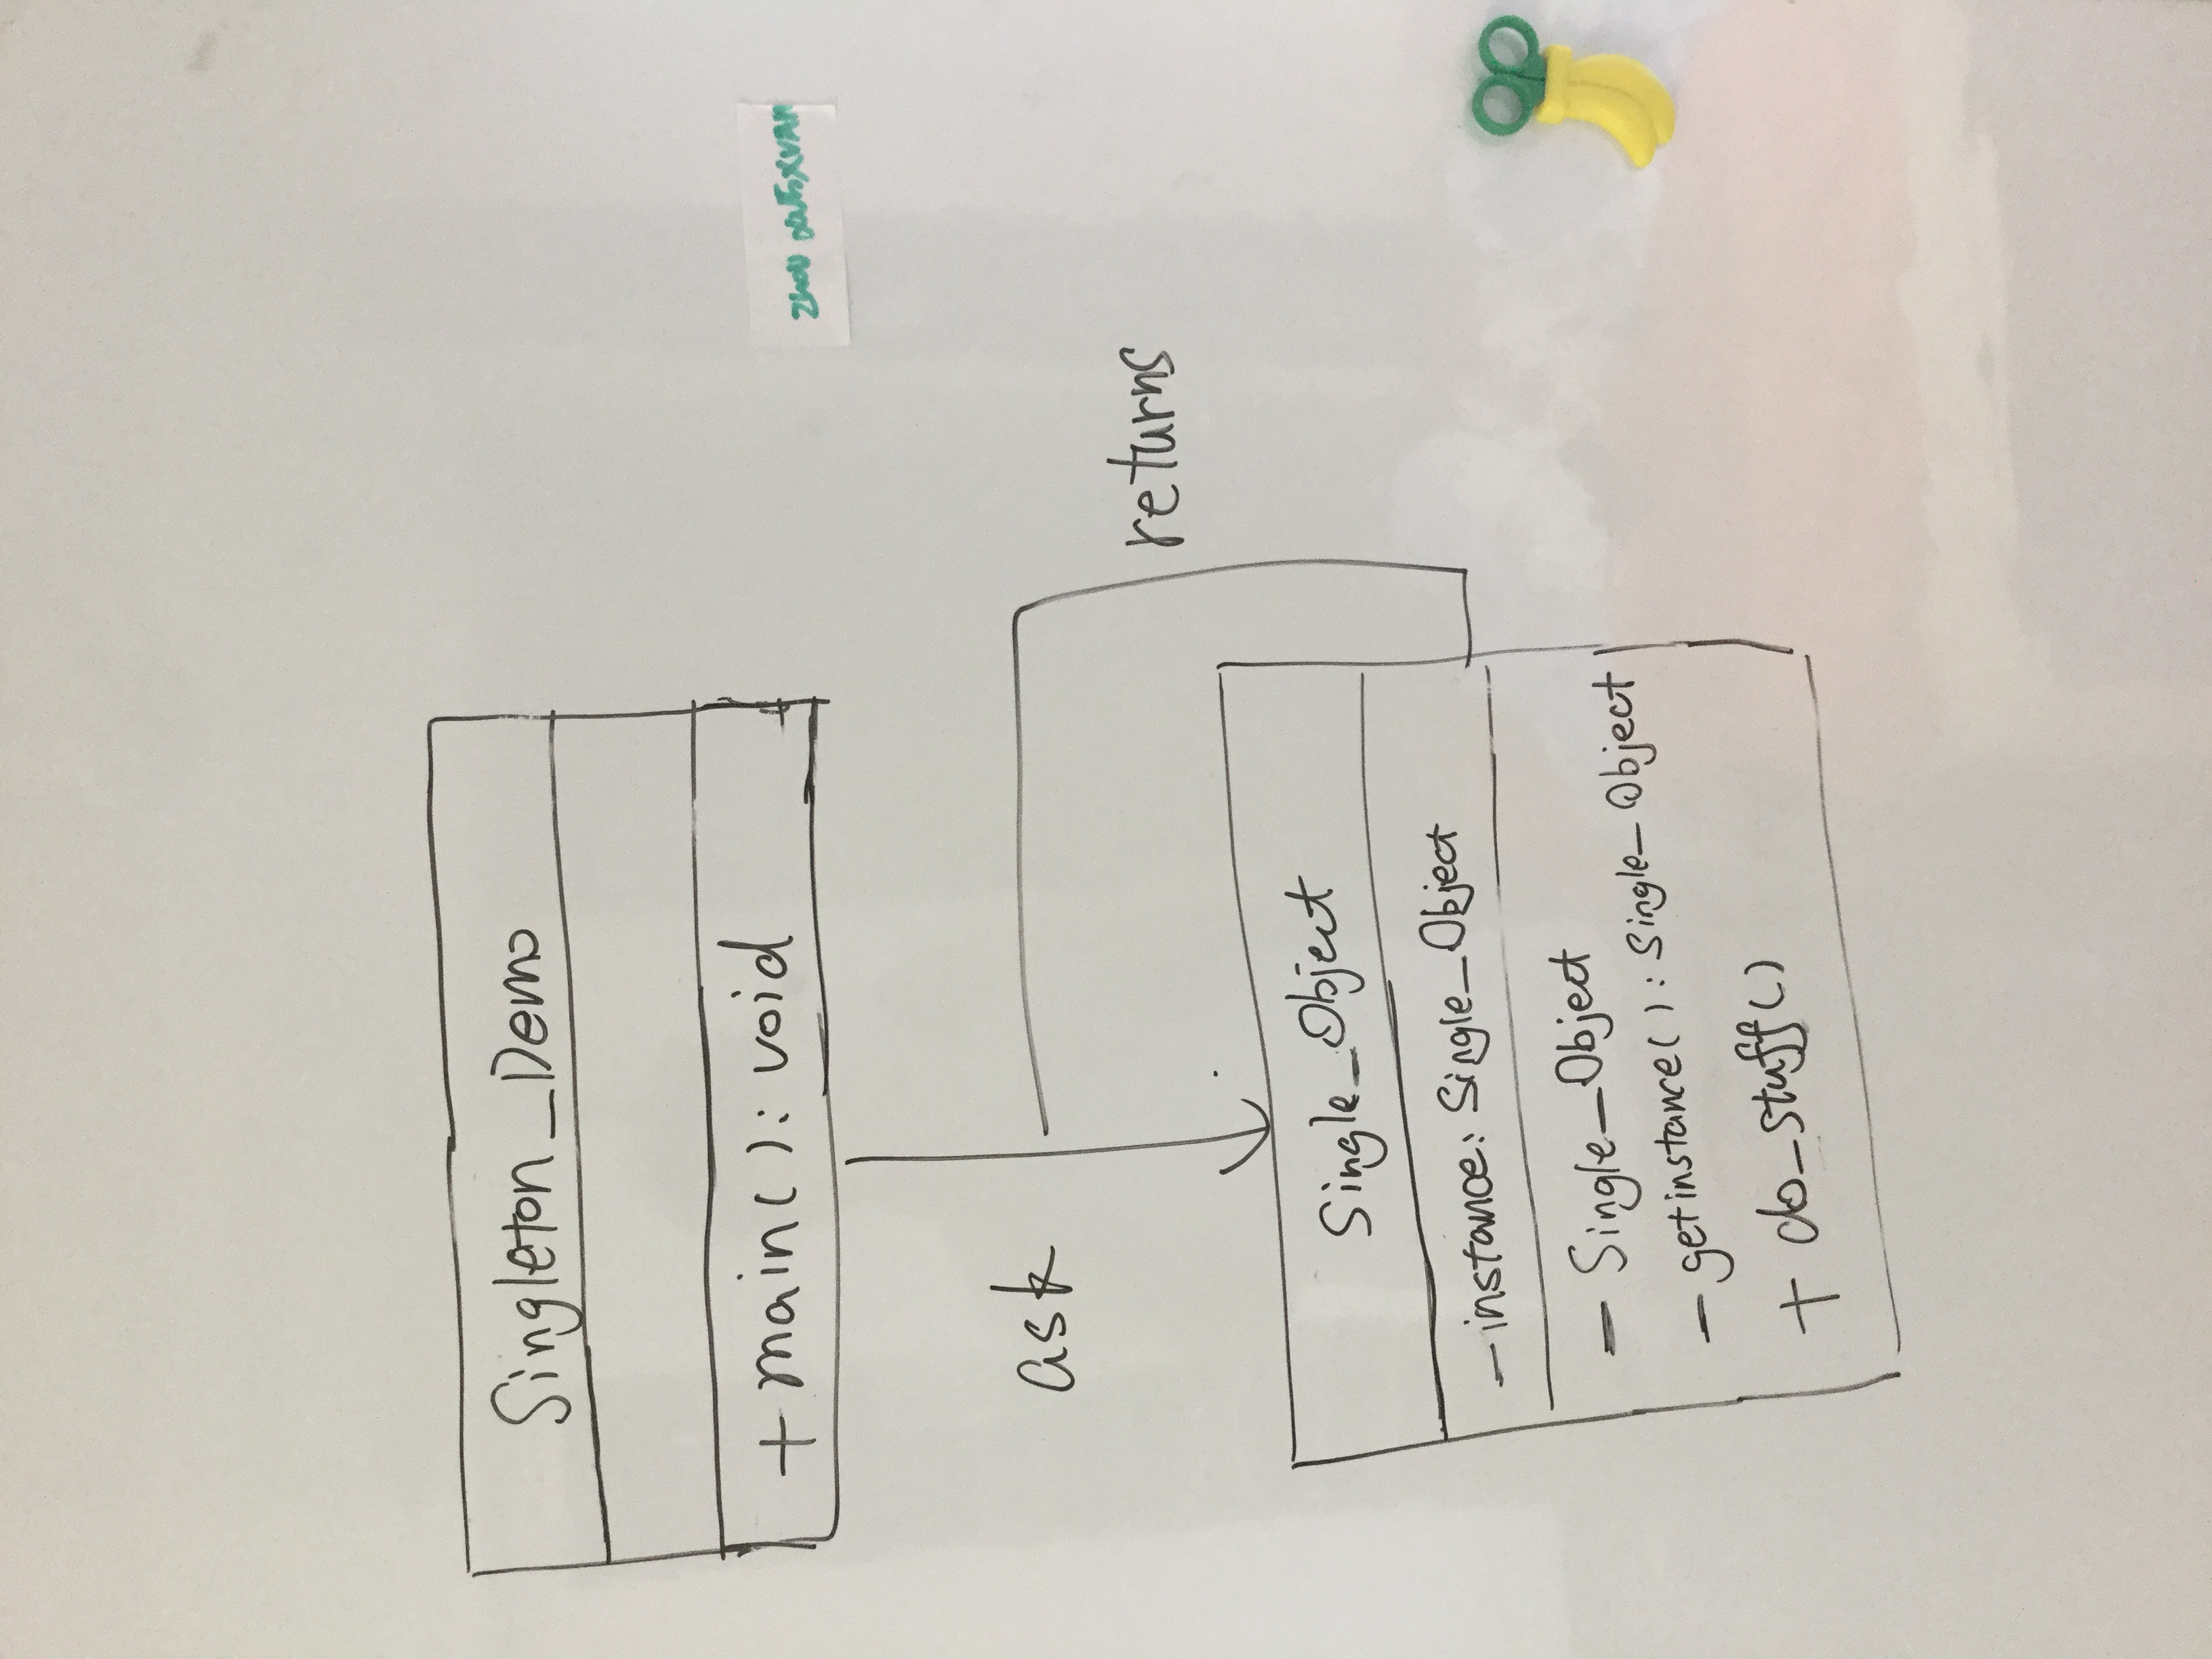 Singleton_Demo
+ main( ): void
ask
returns
Single_Object
- instance: Single_Object
- Single_Object
- getinstance( ): Single_Object
+ do_stuff( )
ZHOU